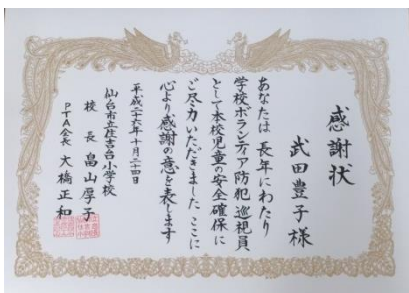 感謝状
武田豊子様
あなたは長年にわたり
学校ボランティア防犯巡視員
として本校児童の安全確保に
ご尽力いただきました ここに
心より感謝の意を表します
平成二十六年十月二十四日
仙台市立住吉台小学校
校長 畠山厚子
PTA会長 大橋正和